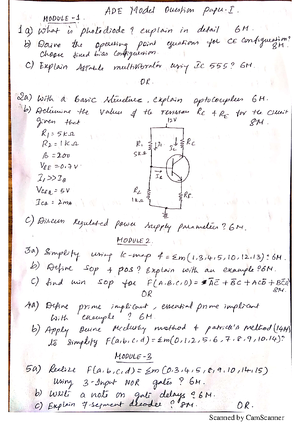 ADE Model Question Paper-I.
MODULE-1
1a) What is photodiode? explain in detail 6M.
b) Derive the operating point equations for CE configuration?
Choose fixed bias configuration 8M.
c) Explain Astable multivibrator using IC 555? 6M.
OR.
2a) With a basic structure, explain optocouplers 6M.
b) Determine the values of the resistor Rc & RE for the circuit
given that 8M
R1 = 5KΩ
R2 = 1KΩ
B = 200
VBE = 0.7V
I1 >> IB
VCEQ = 6V
ICQ = 2ma
12V
R1
5KΩ
R2
1KΩ
c) Discuss regulated power supply parameters? 6M.
MODULE 2
3a) Simplify using K-map f = Σm(1,3,4,5,10,12,13)? 6M.
b) Define SOP & POS? Explain with an example? 6M.
c) find min SOP for F(A,B,C,D) =
8M.
OR
4a) Define prime implicant, essential prime implicant
with example? 6M
b) Apply Quine McClusky method & patrick's Method (14M)
to simplify f(a,b,c,d) = Σm(0,1,2,5,6,7,8,9,10,14)?
MODULE-3
5a) Realize F(a,b,c,d) = Σm(0,3,4,5,8,9,10,14,15)
Using 3-Input NOR gates? 6M.
b) Write a note on gate delays? 6M.
c) Explain 7-segment decoder? 8M. OR.
Scanned by CamScanner